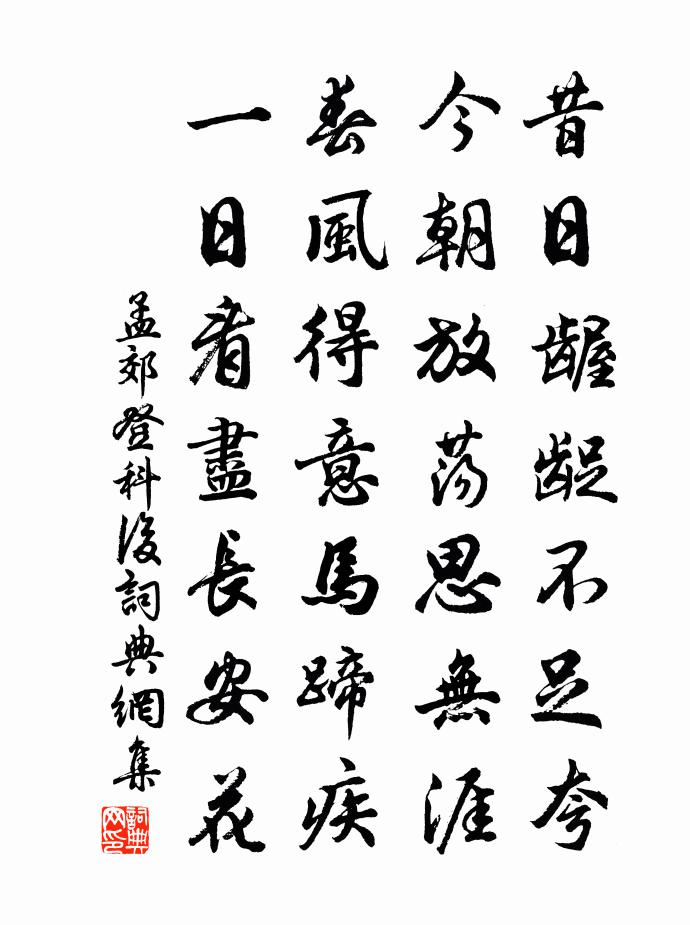 昔日齷齪不足夸
今朝放荡思無涯
春風得意馬蹄疾
一日看盡長安花
孟郊登科後詞典網集
詞典网印